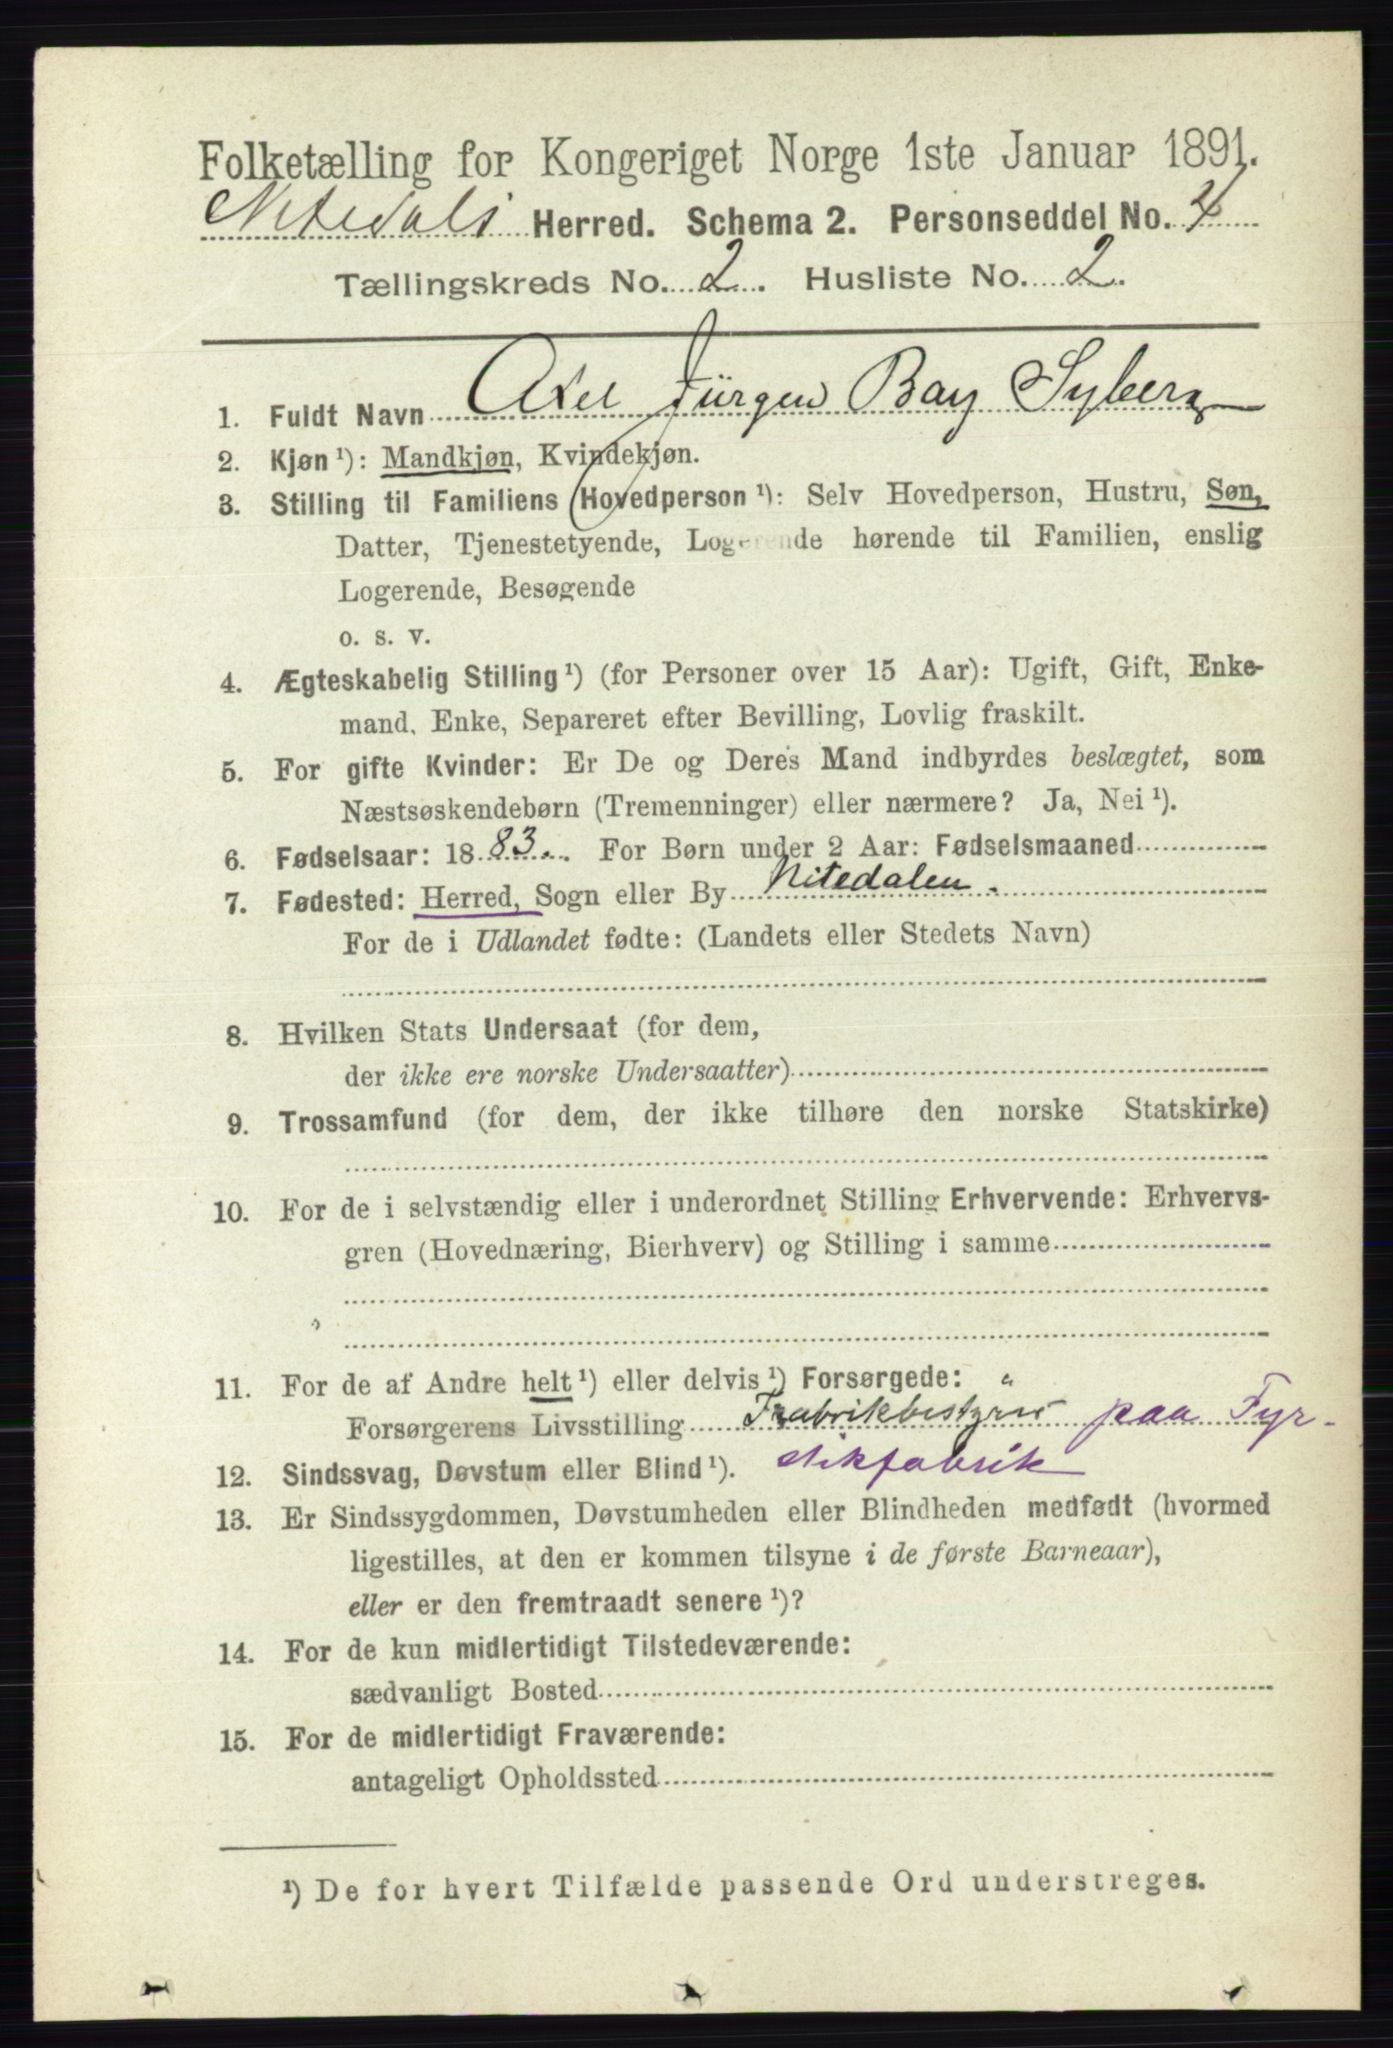 Folketælling for Kongeriget Norge 1ste Januar 1891.
Nitedals Herred. Schema 2. Personseddel No. 4
Tællingskreds No. 2. Husliste No. 2.
1. Fuldt Navn Axel Jürgen Bay Syberg
2. Kjøn ¹): Mandkjøn, Kvindekjøn.
3. Stilling til Familiens Hovedperson ¹): Selv Hovedperson, Hustru, Søn,
Datter, Tjenestetyende, Logerende hørende til Familien, enslig
Logerende, Besøgende
o. s. v.
4. Ægteskabelig Stilling ¹) (for Personer over 15 Aar): Ugift, Gift, Enke-
mand, Enke, Separeret efter Bevilling, Lovlig fraskilt.
5. For gifte Kvinder: Er De og Deres Mand indbyrdes beslægtet, som
Næstsøskendebørn (Tremenninger) eller nærmere? Ja, Nei ¹).
6. Fødselsaar: 1883. For Børn under 2 Aar: Fødselsmaaned
7. Fødested: Herred, Sogn eller By Nitedalen.
For de i Udlandet fødte: (Landets eller Stedets Navn)
8. Hvilken Stats Undersaat (for dem,
der ikke ere norske Undersaatter)
9. Trossamfund (for dem, der ikke tilhøre den norske Statskirke)
10. For de i selvstændig eller i underordnet Stilling Erhvervende: Erhvervs-
gren (Hovednæring, Bierhverv) og Stilling i samme
11. For de af Andre helt ¹) eller delvis ¹) Forsørgede: "
Forsørgerens Livsstilling Fabrikbestyrer paa Fyr-
12. Sindssvag, Døvstum eller Blind ¹). stikfabrik
13. Er Sindssygdommen, Døvstumheden eller Blindheden medfødt (hvormed
ligestilles, at den er kommen tilsyne i de første Barneaar),
eller er den fremtraadt senere ¹)?
14. For de kun midlertidigt Tilstedeværende:
sædvanligt Bosted
15. For de midlertidigt Fraværende:
antageligt Opholdssted
¹) De for hvert Tilfælde passende Ord understreges.